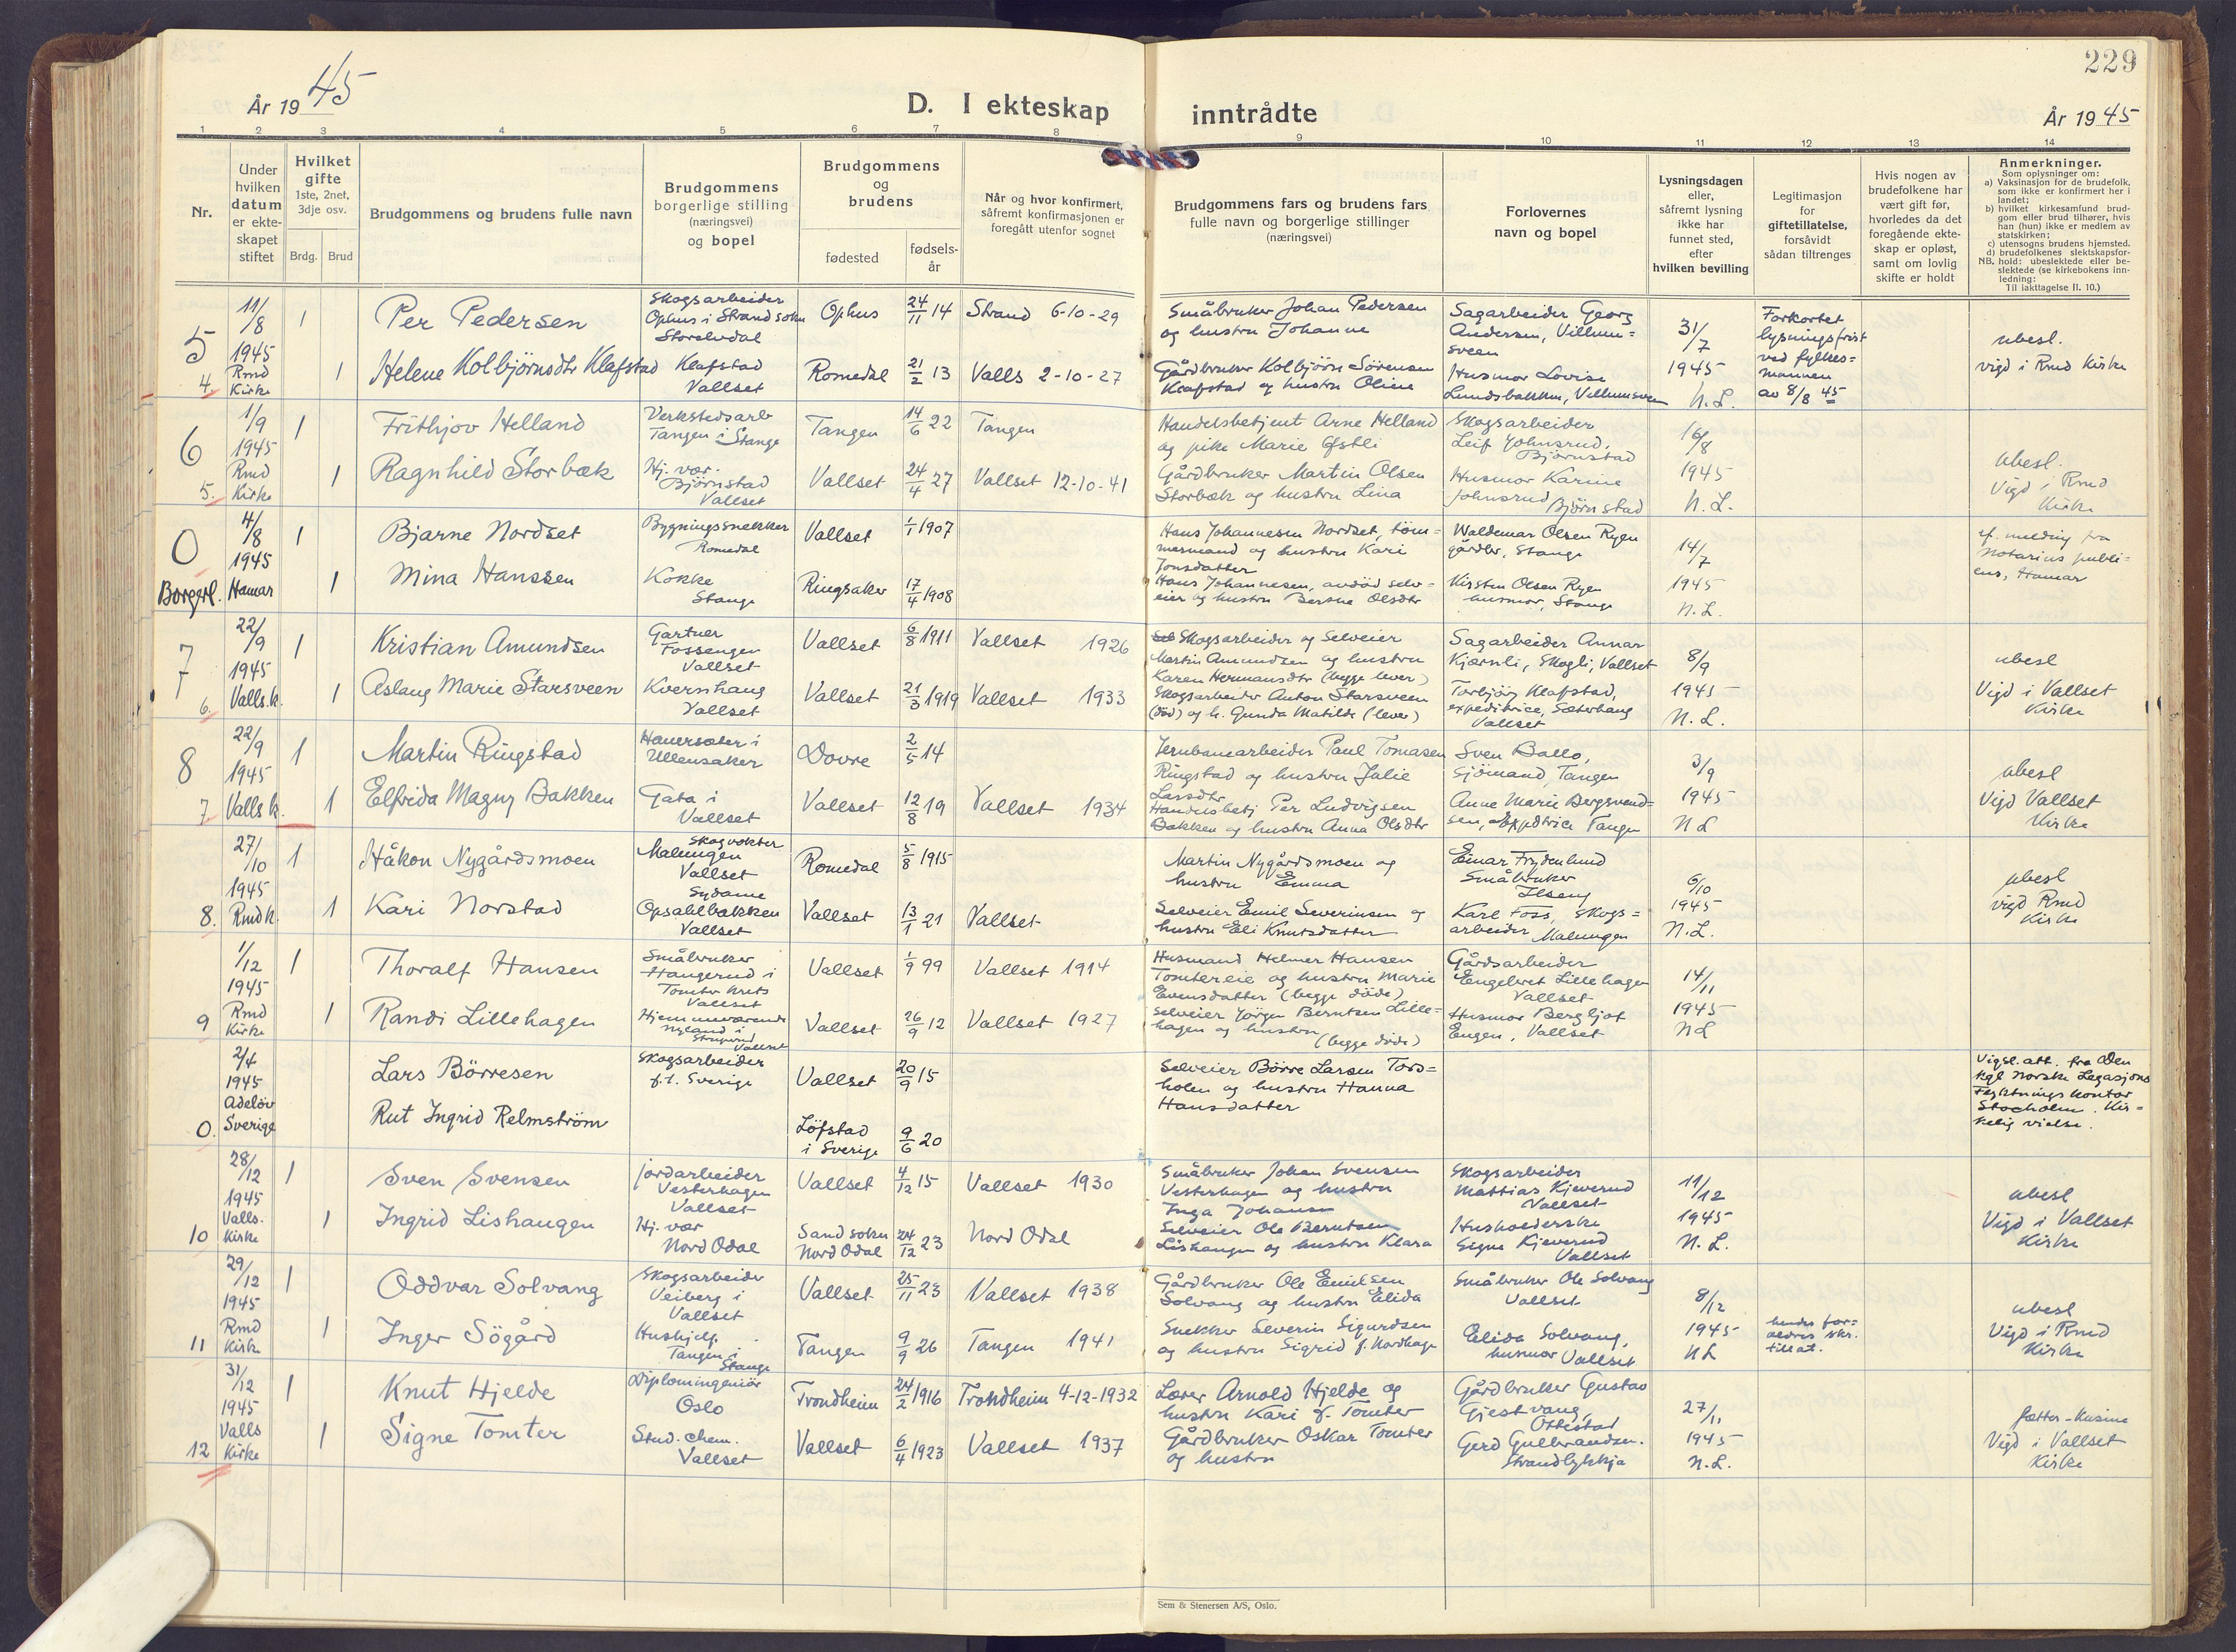 229
År 1945
D. I ekteskap inntrådte
År 1945
1 2 3 4 5 6 7 8 9 10 11 12 13 14
Nr.
Under
hvilken
datum
er ekte-
skapet
stiftet
Hvilket
gifte
1ste, 2net,
3dje osv.
Brdg. Brud
Brudgommens og brudens fulle navn
Brudgommens
borgerlige stilling
(næringsvei)
og bopel
Brudgommens
og
brudens
fødested
fødsels-
år
Når og hvor konfirmert,
såfremt konfirmasjonen er
foregått utenfor sognet
Brudgommens fars og brudens fars
fulle navn og borgerlige stillinger
(næringsvei)
Forlovernes
navn og bopel
Lysningsdagen
eller,
såfremt lysning
ikke har
funnet sted,
efter
hvilken bevilling
Legitimasjon
for
giftetillatelse,
forsåvidt
sådan tiltrenges
Hvis nogen av
brudefolkene har
vært gift før,
hvorledes da det
foregående ekte-
skap er opløst,
samt om lovlig
skifte er holdt
Anmerkninger.
Som oplysninger om:
a) Vaksinasjon for de brudefolk,
som ikke er konfirmert her i
landet;
b) hvilket kirkesamfund brud-
gom eller brud tilhører, hvis
han (hun) ikke er medlem av
statskirken;
c) utensogns brudens hjemsted.
d) brudefolkenes slektskapsfor-
NB. hold: ubeslektede eller be-
slektede (se kirkebokens inn-
ledning:
Til iakttagelse II. 10.)
5
4.
11/8
1945
Rmd
Kirke
1
Per Pedersen
Skogsarbeider
Ophus i Strand sokn
Storelvdal
Ophus
24/11 14
Strand 6-10-29
Småbruker Johan Pedersen
og hustru Johanne
Sagarbeider Georg
Andersen, Villum=
sveen
31/7
1945
N.L.
Forkortet
lysningsfrist
ved fylkes=
mannen
av 8/8 45
ubesl.
vigd i Rmd Kirke
1
Helene Kolbjörnsdtr Klafstad
Klafstad
Vallset
Romedal
21/2 13
Valls 2-10-27
Gårdbruker Kolbjörn Sörensen
Klafstad og hustru Oline
Husmor Lovise
Lundsbakken, Villumsveen
6
5.
1/9
1945
Rmd
Kirke
1
Frithjov Helland
Verkstedsarb
Tangen i Stange
Tangen
14/6 22
Tangen
Handelsbetjent Arne Helland
og pike Marie Østli
Skogsarbeider
Leif Johnsrud,
Björnstad
16/8
1945
N.L.
ubesl.
Vigd i Rmd
Kirke
1
Ragnhild Storbæk
Hj. vær.
Björnstad
Vallset
Vallset
24/4 27
Vallset 12-10-41
Gårdbruker Martin Olsen
Storbæk og hustru Lina
Husmor Karine
Johnsrud Björnstad
0
Borgerl.
4/8
1945
Hamar
1
Bjarne Nordset
Bygningssnekker
Romedal
Vallset
1/1 1907
Hans Johannesen Nordset, töm=
mermand og hustru Kari
Jonsdatter
Waldemar Olsen Ryen
gårdbr, Stange
14/7
1945
N.L.
cf. melding fra
Notarius publi=
cus, Hamar
1
Mina Hanssen
Kokke
Stange
Ringsaker
17/4 1908
Hans Johannesen, avdöd selv=
eier og hustru Berthe Olsdtr
Kirsten Olsen Ryen
husmor, Stange
7
6.
22/9
1945
Valls.k.
1
Kristian Amundsen
Gartner
Fossengen
Vallset
Vallset
6/8 1911
Vallset 1926
Skogsarbeider og Selveier
Martin Amundsen og hustru
Karen Hermansdtr (begge lever)
Sagarbeider Annar
Kjærnli, Skogli, Vallset
8/9
1945
N.L.
ubesl
Vigd i Vallset
Kirke
1
Aslaug Marie Starsveen
Kvernhaug
Vallset
Vallset
21/3 1919
Vallset 1933
Skogsarbeider Anton Starsveen
(död) og h. Gunda Matilde (lever)
Torbjörg Klafstad,
expeditrice, Sæterhaug
Vallset
8
7
22/9
1945
Valls k.
1
Martin Ringstad
Hauersæter i
Ullensaker
Dovre
2/5 14
Jernbanearbeider Paul Tomasen
Ringstad og hustru Julie
Larsdtr
Sven Ballo,
Sjömand, Tangen
3/9
1945
N L
ubesl
Vigd Vallset
Kirke
1
Elfrida Magny Bakken
Gata i
Vallset
Vallset
12/8 19
Vallset 1934
Handelsbetj Per Ludvigsen
Bakken og hustru Anna Olsdtr
Anne Marie Bergsvend=
sen, expeditrice Tangen
8.
27/10
1945
Rmd k.
1
Håkon Nygårdsmoen
Skogvokter
Malungen
Vallset
Romedal
5/8 1915
Martin Nygårdsmoen og
hustru Emma
Einar Frydenlund
Småbruker
Ilseng
6/10
1945
N.L.
ubesl
vigd Rmd
Kirke
1
Kari Norstad
Sydame
Opsahlbakken
Vallset
Vallset
13/1 21
Vallset
Selveier Emil Severinsen og
hustru Eli Knutsdatter
Karl Foss, Skogs=
arbeider Malungen
9
1/12
1945
Rmd
Kirke
1
Thoralf Hansen
Småbruker
Haugerud i
Tomter krets
Vallset
Vallset
1/9 99
Vallset 1914
Husmand Helmer Hansen
Tomtereie og hustru Marie
Evensdatter (begge döde)
Gårdsarbeider
Engebret Lillehagen
Vallset
14/11
1945
N L
1
Randi Lillehagen
Hjemmeværende
Nyland i
Vallset
Vallset
26/9 12
Vallset 1927
Selveier Jörgen Berntsen Lille=
hagen og hustru
(begge döde)
Husmor Bergljot
Engen, Vallset
0.
2/4
1945
Adelöv
Sverige
Lars Börresen
Skogsarbeider
f.t. Sverige
Vallset
20/9 15
Selveier Börre Larsen Tord=
holen og hustru Hanna
Hansdatter
Vigsl.att. fra Den
Kgl Norske Legasjons
Flyktningskontor
Stocholm. Kir=
kelig vielse.
Rut Ingrid Relmström
Löfstad
i Sverige
9/6 20
10
28/12
1945
Valls.
Kirke
1
Sven Svensen
jordarbeider
Vesterhagen
Vallset
Vallset
4/12 15
Vallset 1930
Småbruker Johan Svensen
Vesterhagen og hustru
Inga Johansen
Skogsarbeider
Mattias Kjeverud
Vallset
11/12
1945
N.L.
ubesl
Vigd i Vallset
Kirke
1
Ingrid Lishaugen
Hj. vær
Nord Odal
Sand sokn
Nord Odal
24/12 23
Nord Odal
Selveier Ole Berntsen
Lishaugen og hustru Klara
Husholderske
Signe Kjeverud
Vallset
11
29/12
1945
Rmd
Kirk
1
Oddvar Solvang
Skogsarbeider
Veiberg i
Vallset
Vallset
25/11 23
Vallset 1938
Gårdbruker Ole Emilsen
Solvang og hustru Elida
Småbruker Ole Solvang
Vallset
8/12
1945
N L
hendes for=
ældres skr.
tillat.
ubesl
Vigd i Rmd
Kirke
1
Inger Sögård
Hushjelp
Tangen i
Stange
Tangen
9/9 26
Tangen 1941
Snekker Severin Sigurdsen
og hustru Sigrid f. Nordhagen
Elida Solvang,
husmor Vallset
12
31/12
1945
Valls
Kirke
1
Knut Hjelde
Diplomingeniör
Oslo
Trondheim
24/2 1916
Trondheim 4-12-1932
Lærer Arnold Hjelde og
hustru Kari f. Tomter
Gårdbruker Gustav
Gjestvang,
Ottestad
27/11
1945
N.L.
fætter-kusine
Vigd i Vallset
Kirke
1
Signe Tomter
Stud. chem.
Vallset
Vallset
6/4 1923
Vallset 1937
Gårdbruker Oskar Tomter
og hustru
Gerd Gulbrandsen.
Strandlykkja
Sem & Stenersen A/S, Oslo.